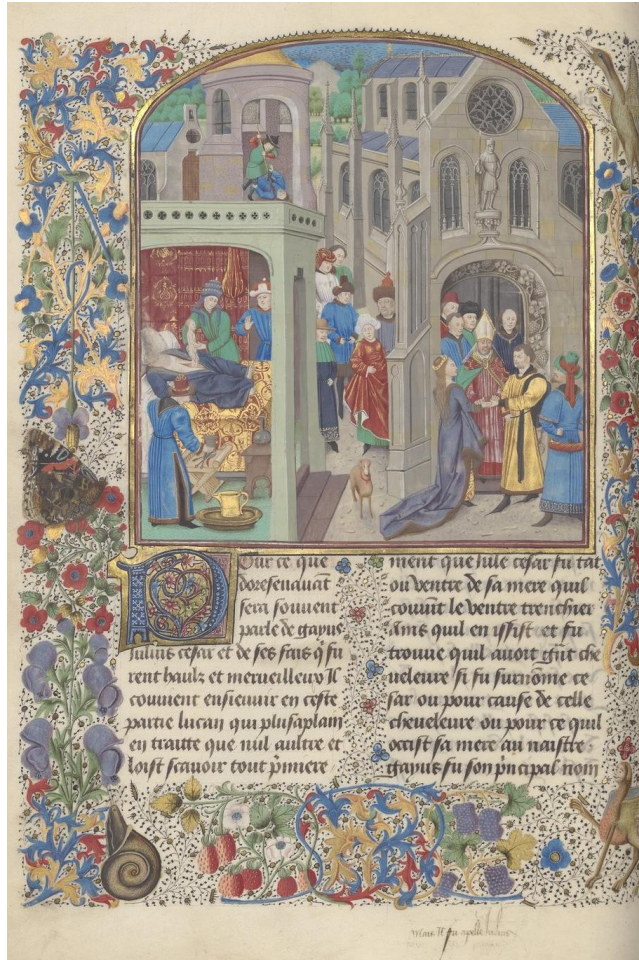 Pour ce que
doresenavant
sera souvent
parle de gayus
Julius cesar et de ses fais q̃ fu
rent haulz et merueilleux Il
conuient ensieuuir en ceste
partie lucan qui plus aplain
en traitte que nul aultre et
loist scauoir tout p̃miere
ment que Jule cesar fu tãt
ou ventre de sa mere quil
conuint le ventre trenchier
Ains quil en issist et fu
trouue quil auoit grãt che
ueleure si fu surnõme ce
sar ou pour cause de celle
cheueleure ou pour ce quil
occist sa mere au naistre
gayus fu son p̃ncipal nom